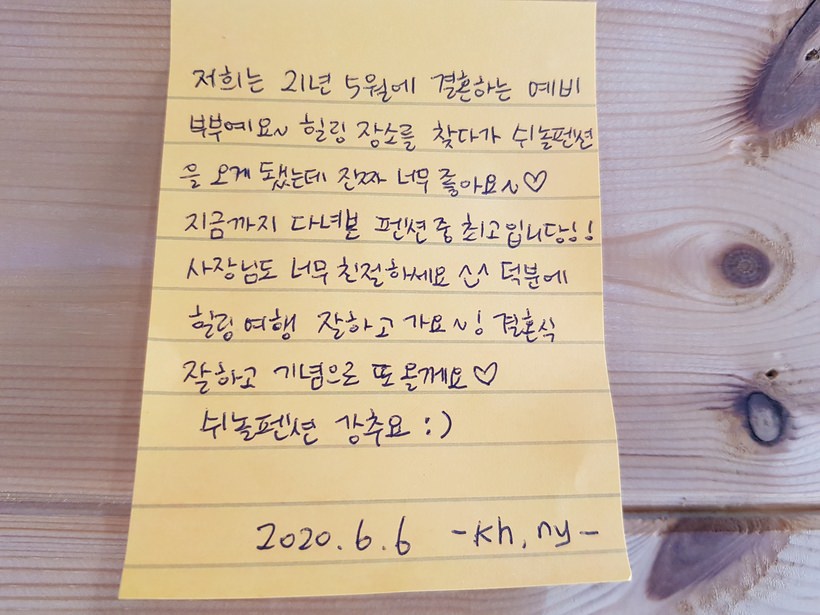 저희는 21년 5월에 결혼하는 예비
부부예요~ 힐링 장소를 찾다가 쉬놀펜션
을 오게 됐는데 진짜 너무 좋아요~♡
지금까지 다녀본 펜션중 최고입니당!!
사장님도 너무 친절하세요 ^^ 덕분에
힐링여행 잘하고 가요~! 결혼식
잘하고 기념으로 또 올께요♡
쉬놀펜션 강추요 :)
2020.6.6 -kh, ny-